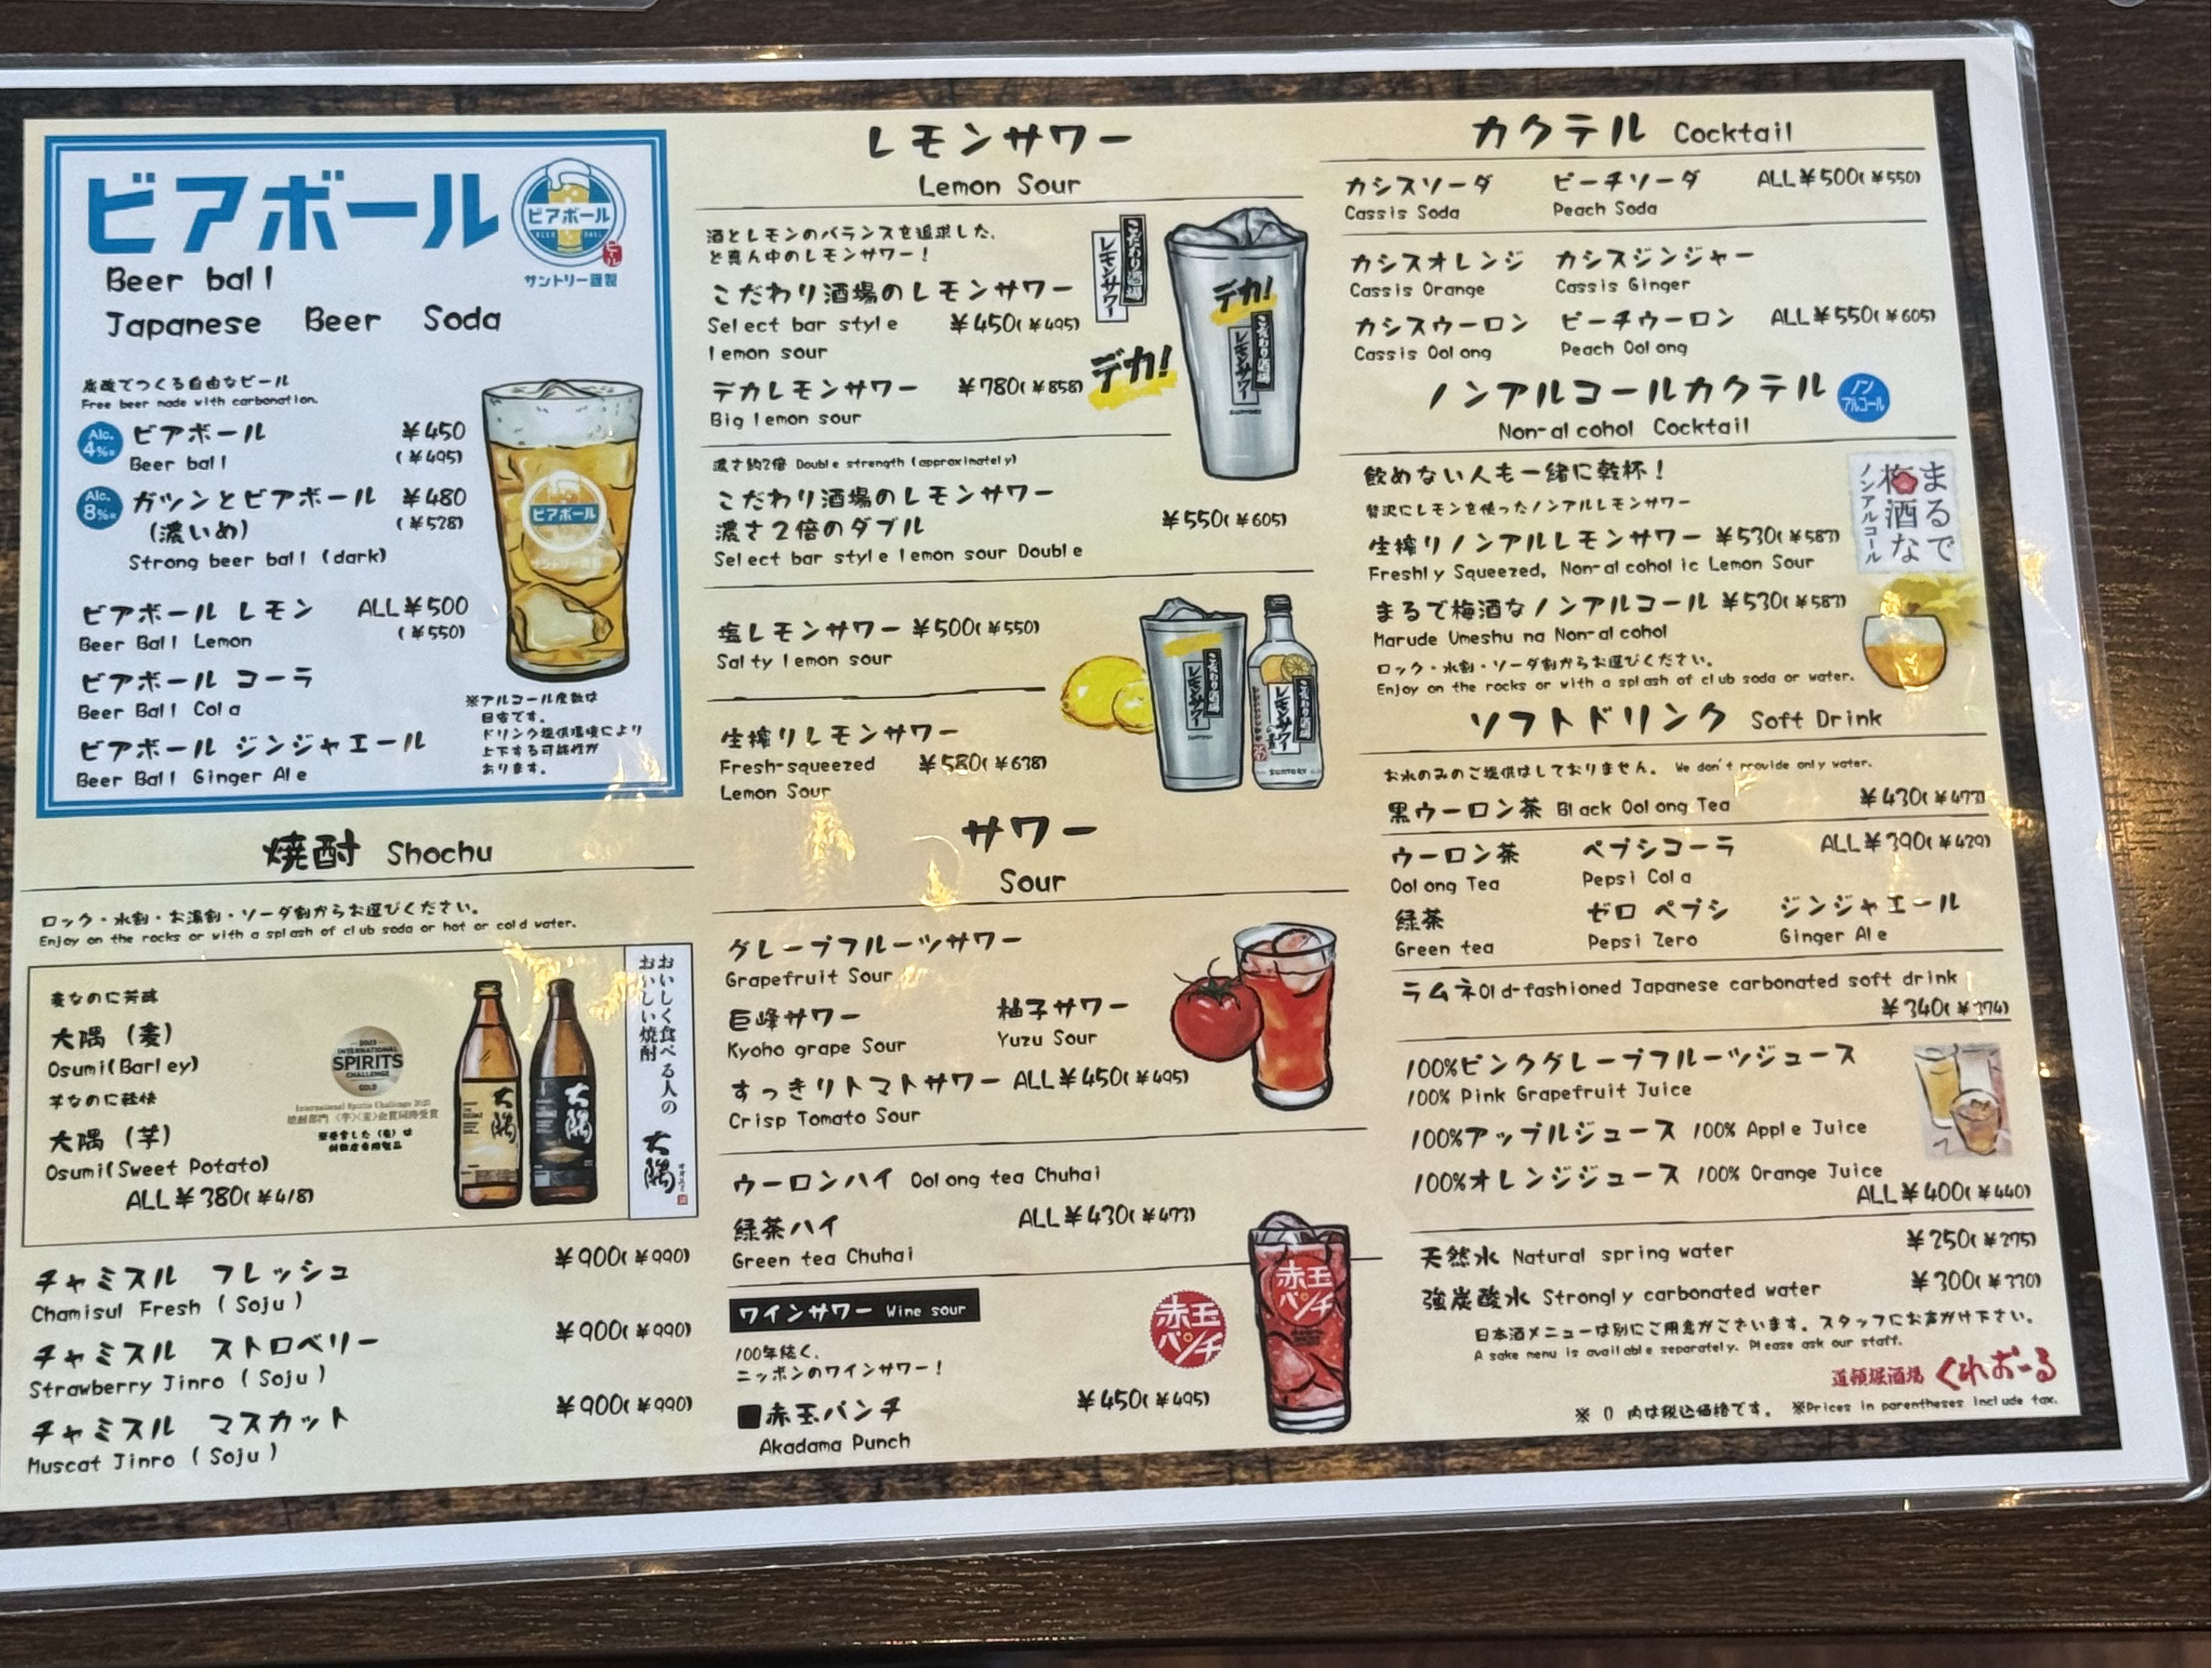 ビアボール
ビアボール
BEER BALL
ビール
サントリー謹製
Beer ball
Japanese Beer Soda
炭酸でつくる自由なビール
Free beer made with carbonation.
Alc. 4%
ビアボール ¥450
Beer ball (¥495)
Alc. 8%
ガツンとビアボール ¥480
(濃いめ) (¥528)
Strong beer ball (dark)
ビアボール レモン ALL¥500
Beer Ball Lemon (¥550)
ビアボール コーラ
Beer Ball Cola
ビアボール ジンジャエール
Beer Ball Ginger Ale
ビアボール
※アルコール度数は
目安です。
ドリンク提供環境により
上下する可能性が
あります。
焼酎 Shochu
ロック・水割・お湯割・ソーダ割からお選びください。
Enjoy on the rocks or with a splash of club soda or hot or cold water.
麦なのに芳醇
大隅 (麦)
Osumi(Barley)
芋なのに軽快
大隅 (芋)
Osumi(Sweet Potato)
ALL¥380(¥418)
2023
INTERNATIONAL
SPIRITS
CHALLENGE
GOLD
International Spirits Challenge 2023
焼酎部門 〈芋〉〈麦〉金賞同時受賞
大隅
大隅
おいしく食べる人の
おいしい焼酎
大隅
チャミスル フレッシュ ¥900(¥990)
Chamisul Fresh (Soju)
チャミスル ストロベリー ¥900(¥990)
Strawberry Jinro (Soju)
チャミスル マスカット ¥900(¥990)
Muscat Jinro (Soju)
レモンサワー
Lemon Sour
酒とレモンのバランスを追求した、
ど真ん中のレモンサワー!
こだわり酒場のレモンサワー
Select bar style ¥450(¥495)
lemon sour
デカレモンサワー ¥780(¥858)
Big lemon sour
こだわり酒場の
レモンサワー
デカ!
デカ!
こだわり酒場の
レモンサワー
SUNTORY
濃さ約2倍 Double strength (approximately)
こだわり酒場のレモンサワー
濃さ2倍のダブル ¥550(¥605)
Select bar style lemon sour Double
塩レモンサワー ¥500(¥550)
Salty lemon sour
生搾りレモンサワー
Fresh-squeezed ¥580(¥638)
Lemon Sour
こだわり酒場の
レモンサワー
レモンサワー
SUNTORY
サワー
Sour
グレープフルーツサワー
Grapefruit Sour
巨峰サワー 柚子サワー
Kyoho grape Sour Yuzu Sour
すっきりトマトサワー ALL¥450(¥495)
Crisp Tomato Sour
ウーロンハイ Oolong tea Chuhai
緑茶ハイ ALL¥430(¥473)
Green tea Chuhai
ワインサワー Wine sour
100年続く、
ニッポンのワインサワー!
■赤玉パンチ ¥450(¥495)
Akadama Punch
赤玉パンチ
赤玉パンチ
カクテル Cocktail
カシスソーダ ピーチソーダ ALL¥500(¥550)
Cassis Soda Peach Soda
カシスオレンジ カシスジンジャー
Cassis Orange Cassis Ginger
カシスウーロン ピーチウーロン ALL¥550(¥605)
Cassis Oolong Peach Oolong
ノンアルコールカクテル ノンアルコール
Non-alcohol Cocktail
飲めない人も一緒に乾杯!
贅沢にレモンを使ったノンアルレモンサワー
生搾りノンアルレモンサワー ¥530(¥583)
Freshly Squeezed, Non-alcoholic Lemon Sour
まるで梅酒なノンアルコール ¥530(¥583)
Marude Umeshu na Non-alcohol
ロック・水割・ソーダ割からお選びください。
Enjoy on the rocks or with a splash of club soda or water.
まるで
梅酒な
ノンアルコール
ソフトドリンク Soft Drink
お水のみのご提供はしておりません。 We don't provide only water.
黒ウーロン茶 Black Oolong Tea ¥430(¥473)
ウーロン茶 ペプシコーラ ALL¥390(¥429)
Oolong Tea Pepsi Cola
緑茶 ゼロ ペプシ ジンジャエール
Green tea Pepsi Zero Ginger Ale
ラムネ Old-fashioned Japanese carbonated soft drink
¥340(¥374)
100%ピンクグレープフルーツジュース
100% Pink Grapefruit Juice
100%アップルジュース 100% Apple Juice
100%オレンジジュース 100% Orange Juice
ALL¥400(¥440)
天然水 Natural spring water ¥250(¥275)
強炭酸水 Strongly carbonated water ¥300(¥330)
日本酒メニューは別にご用意がございます。スタッフにお声がけ下さい。
A sake menu is available separately. Please ask our staff.
道頓堀酒場 くれおーる
※ () 内は税込価格です。 ※Prices in parentheses include tax.